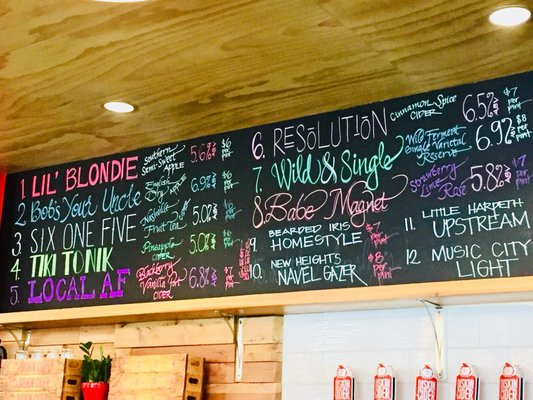 1 LIL' BLONDIE Southern Semi-Sweet APPLE 5.6% $6
2 Bob's Your Uncle English 6.9% $6
3 SIX ONE FIVE Nashville Fruit Tea 5.0% $6
4 TIKI TONIK Pineapple CIDER 5.0% $6
5. LOCAL AF Blackberry Vanilla CIDER 6.8% $7
6. RESOLUTION Cinnamon Spice CIDER 6.5% $7 per pint
7. Wild & Single Wild Ferment Single Varietal Reserve 6.9% $8 per pint
8. Babe Magnet Strawberry Lime Rosé 5.8% $7 per pint
9 BEARDED IRIS HOMESTYLE $7
10. NEW HEIGHTS NAVEL GAZER $8
11. LITTLE HARPETH UPSTREAM
12 MUSIC CITY LIGHT
DISKIN CIDER
DISKIN CIDER
DISKIN CIDER
DISKIN CIDER
DISKIN CIDER